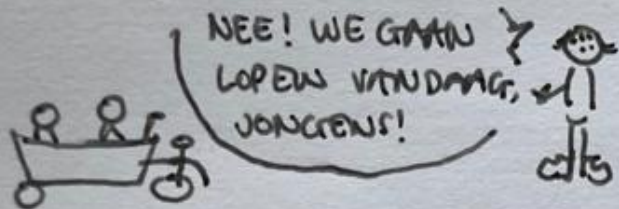 NEE! WE GAAN
LOPEN VANDAAG,
JONGENS!